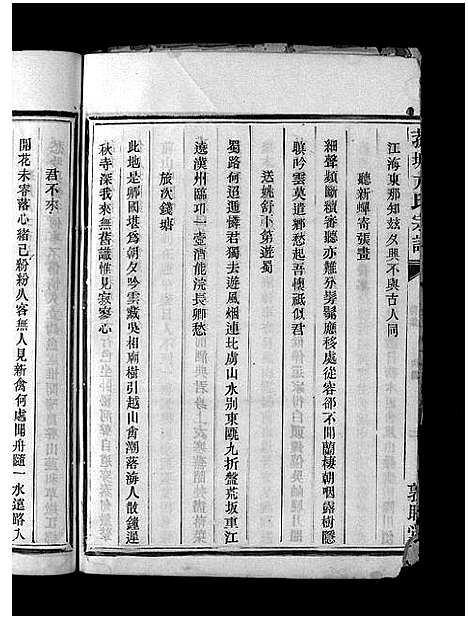 方氏宗譜
江海東那知茲夕興不與古人同
聽新蟬寄張晝
細聲頻斷續審聽亦難分髣髴應移處從容卻不聞蘭棲朝咽露樹隱
暝吟雲莫道鄉愁起吾懷祇似君
送姚舒下第遊蜀
蜀路何迢憐君獨去遊風烟連北虜山水別東甌九折盤荒坂車江
遶漢州臨邛一壺酒能浣長卿愁
旅次錢塘
此地是鄉國堪為朝夕吟雲藏吳相廟樹引越山禽潮落海人散鐘遲
秋寺深我來無舊識惟見寂寥心
君不來
閒花未零落心緒已紛紛人客無人見新禽何處聞舟隨一水遠路入